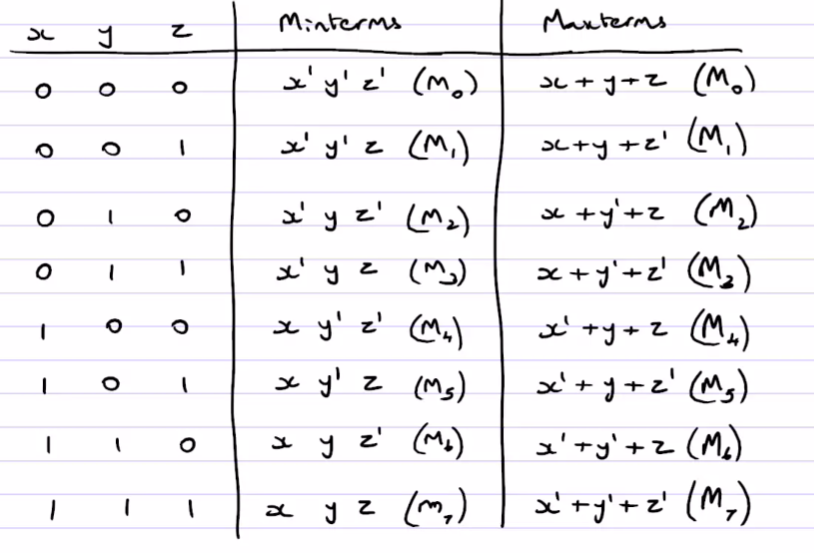 x y z Minterms Maxterms
0 0 0 x' y' z' (M₀) x + y + z (M₀)
0 0 1 x' y' z (M₁) x + y + z' (M₁)
0 1 0 x' y z' (M₂) x + y' + z (M₂)
0 1 1 x' y z (M₃) x + y' + z' (M₃)
1 0 0 x y' z' (M₄) x' + y + z (M₄)
1 0 1 x y' z (M₅) x' + y + z' (M₅)
1 1 0 x y z' (M₆) x' + y' + z (M₆)
1 1 1 x y z (m₇) x' + y' + z' (M₇)